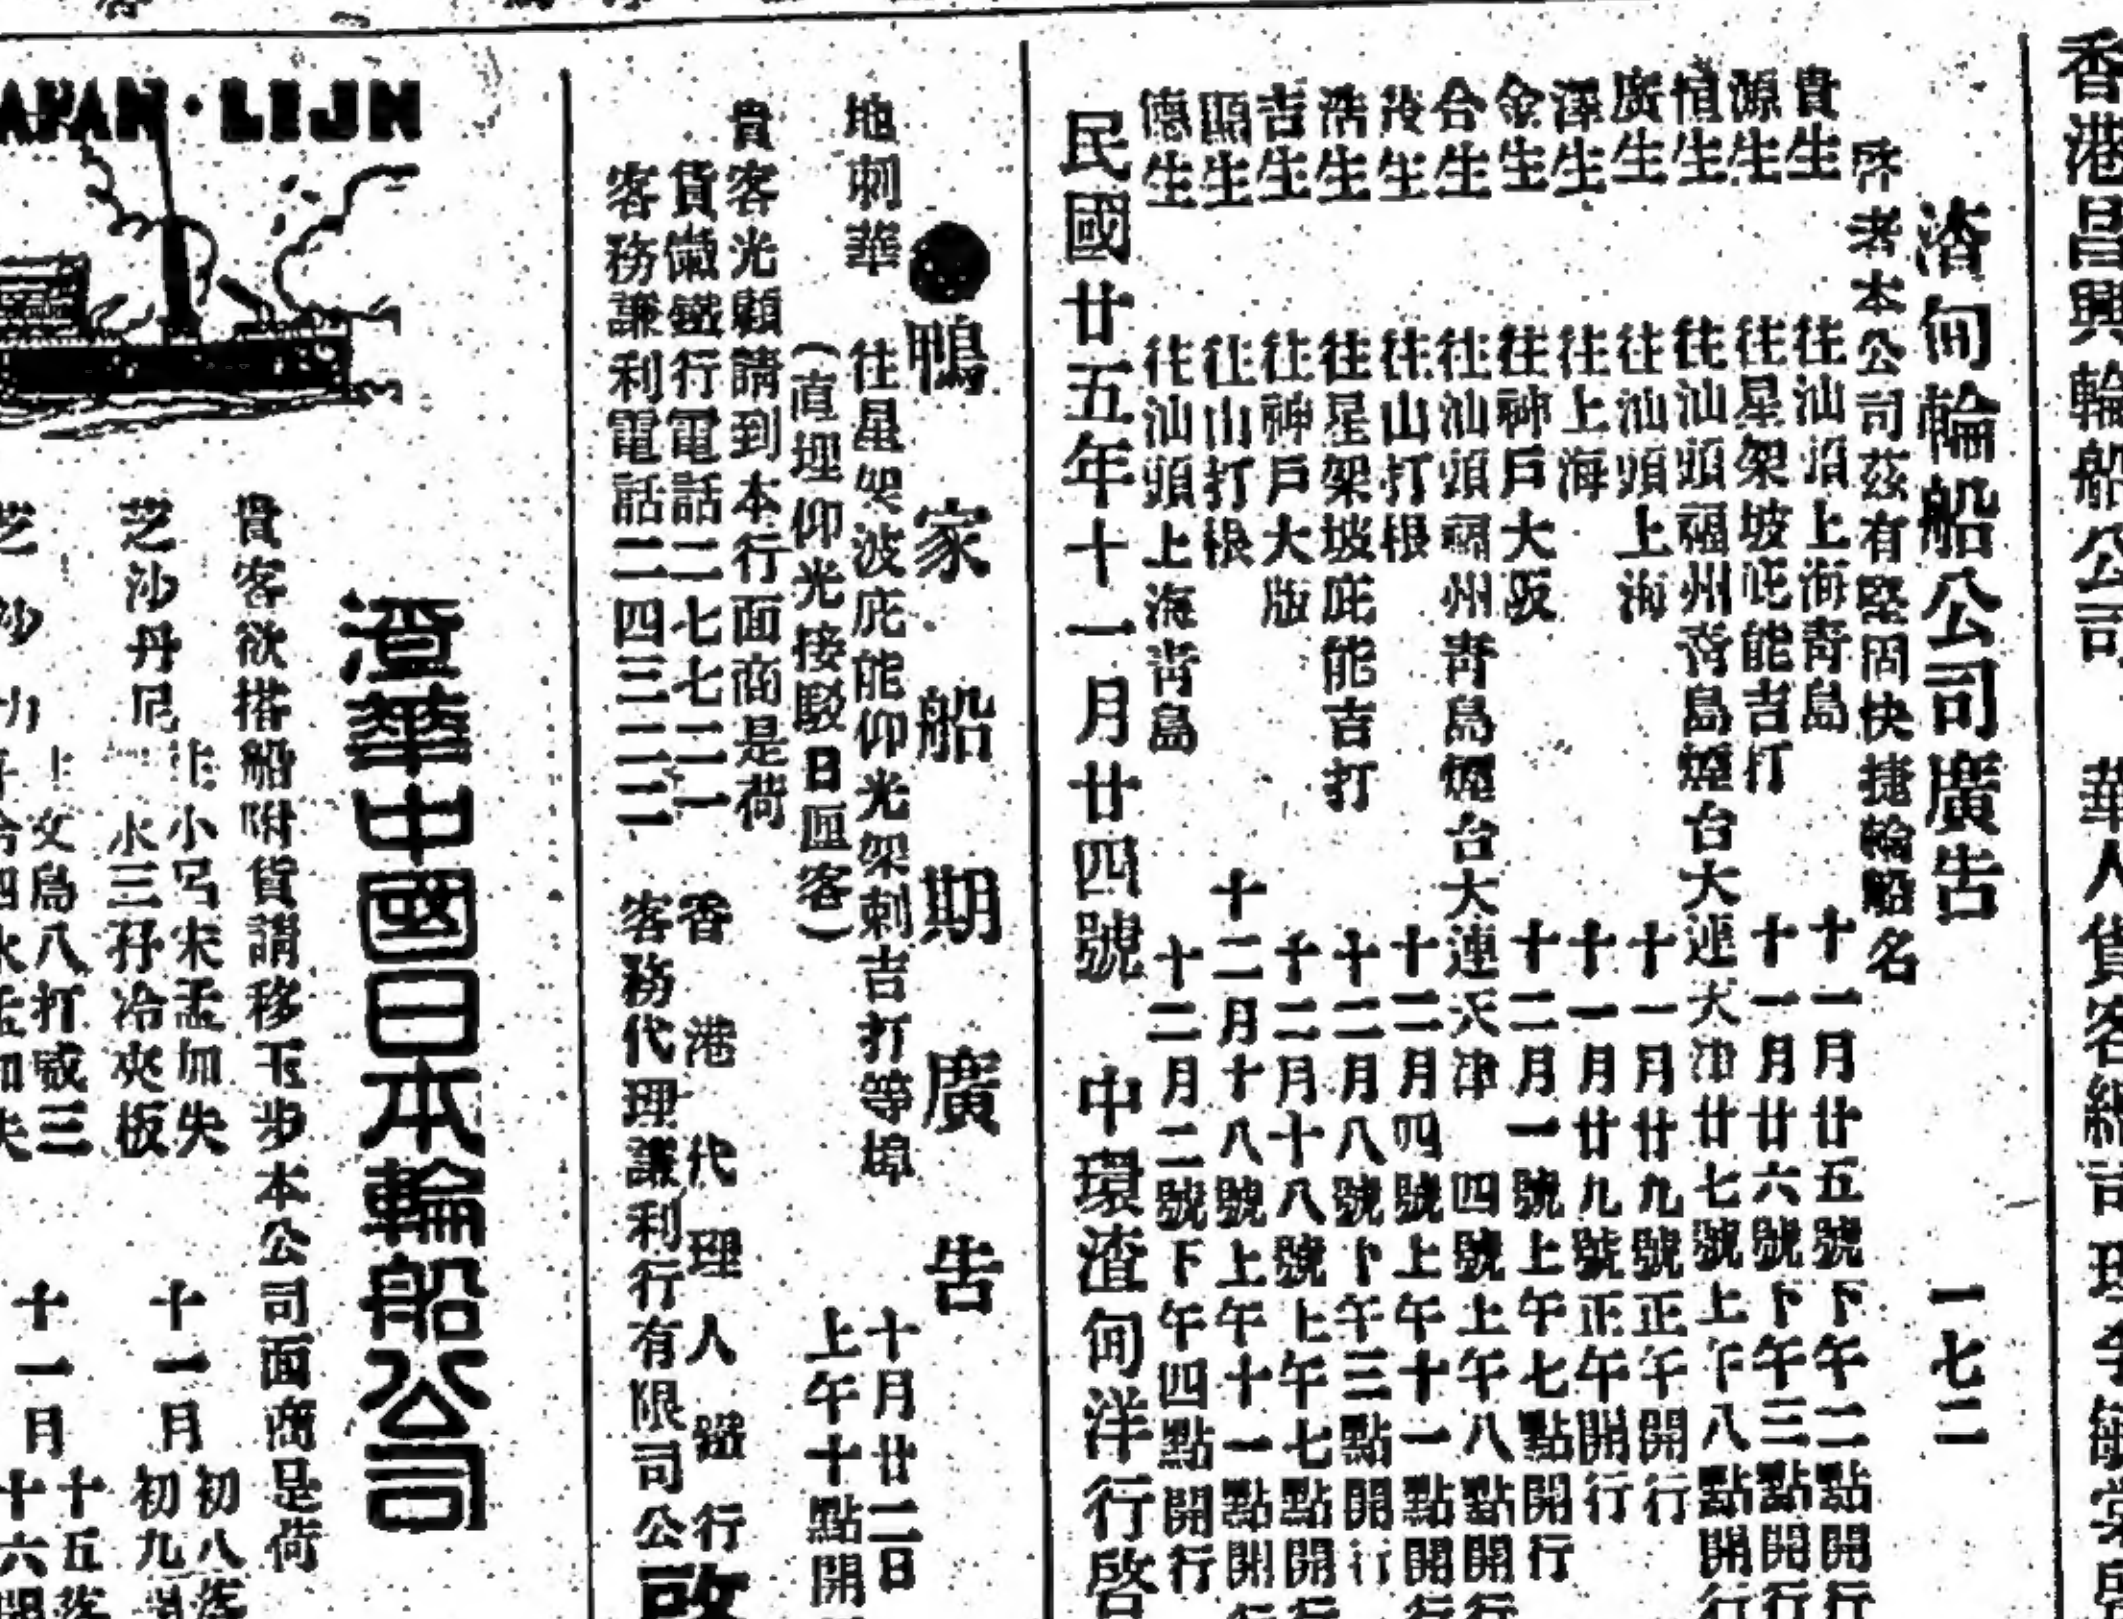 香港昌興輪船公司 華人貨客總
渣甸輪船公司廣告 一七二
啓者本公司茲有堅固快捷輪船名
貴生 往汕頭上海青島 十一月廿五號下午二點開行
源生 往星架坡庇能吉打 十一月廿六號下午三點開行
恒生 往汕頭福州青島煙台大連天津廿七號上午八點開行
廣生 往汕頭上海 十一月廿九號正午開行
澤生 往上海 十一月廿九號正午開行
金生 往神戶大阪 十二月一號上午七點開行
合生 往汕頭福州青島煙台大連天津 四號上午八點開行
茂生 往山打根 十二月四號上午十一點開行
浩生 往星架坡庇能吉打 十二月八號下午三點開行
吉生 往神戶大版 十二月十八號上午七點開行
顯生 往山打根 十二月十八號上午十一點開行
德生 往汕頭上海青島 十二月二號下午四點開行
民國廿五年十一月廿四號 中環渣甸洋行啓
●鴨家船期廣告
地刺華 往星架波庇能仰光架刺吉打等埠 十月廿二日
(直埋仰光接駁日厘客) 上午十點開
貴客光顧請到本行面商是荷
貨儎鐵行電話二七七二一 香港代理人鐵行
客務謙利電話二四三二二 客務代理謙利行有限司公啓
JAPAN·LIJN
渣華中國日本輪船公司
貴客欲搭船附貨請移玉步本公司面商是荷
芝沙丹尼 十一月 初八落
初九
芝 十一月 十五落
十六